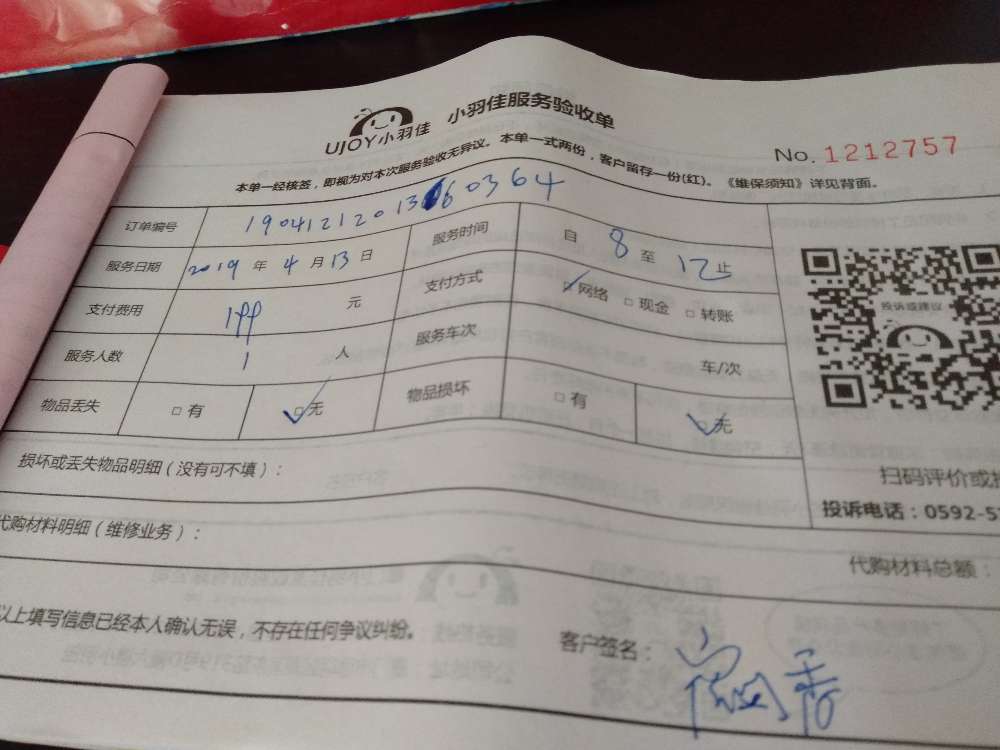 UJOY小羽佳 小羽佳服务验收单
No. 1212757
本单一经核签，即视为对本次服务验收无异议。本单一式两份，客户留存一份(红)。《维保须知》详见背面。
订单编号 1904121201360364
服务日期 2019 年 4 月 13 日 服务时间 自 8 至 12 止
支付费用 199 元 支付方式 网络 □ 现金 □ 转账
服务人数 1 人 服务车次 车/次
物品丢失 □ 有 □ 无 物品损坏 □ 有 □ 无
投诉或建议
损坏或丢失物品明细（没有可不填）：
扫码评价或
投诉电话：0592-5
代购材料明细（维修业务）：
代购材料总额：
以上填写信息已经本人确认无误，不存在任何争议纠纷。
客户签名：